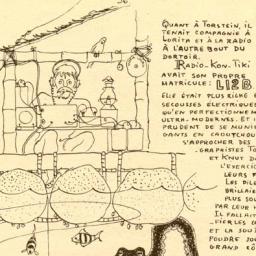 QUANT À TORSTEIN, IL
TENAIT COMPAGNIE À
LORITA ET À LA RADIO
À L'AUTRE BOUT DU
DORTOIR.
RADIO-KON-TIKI
AVAIT SON PROPRE
MATRICULE: LI2B
ELLE ÉTAIT PLUS RICHE E
SECOUSSES ÉLECTRIQUES
QU'EN PERFECTIONNEM
ULTRA-MODERNES. ET I
PRUDENT DE SE MUNI
DANTS EN CAOUTCHOU
S'APPROCHER DES
GRAPHISTES TO
ET KNUT D
L'EXERCIC
LEURS F
LES DILE
BRILLAIE
PLUS SOU
PAR LEUR H
IL FALLAIT
FIER LES
ET LA SOU
POUDRE SOU
GRAND RÔ